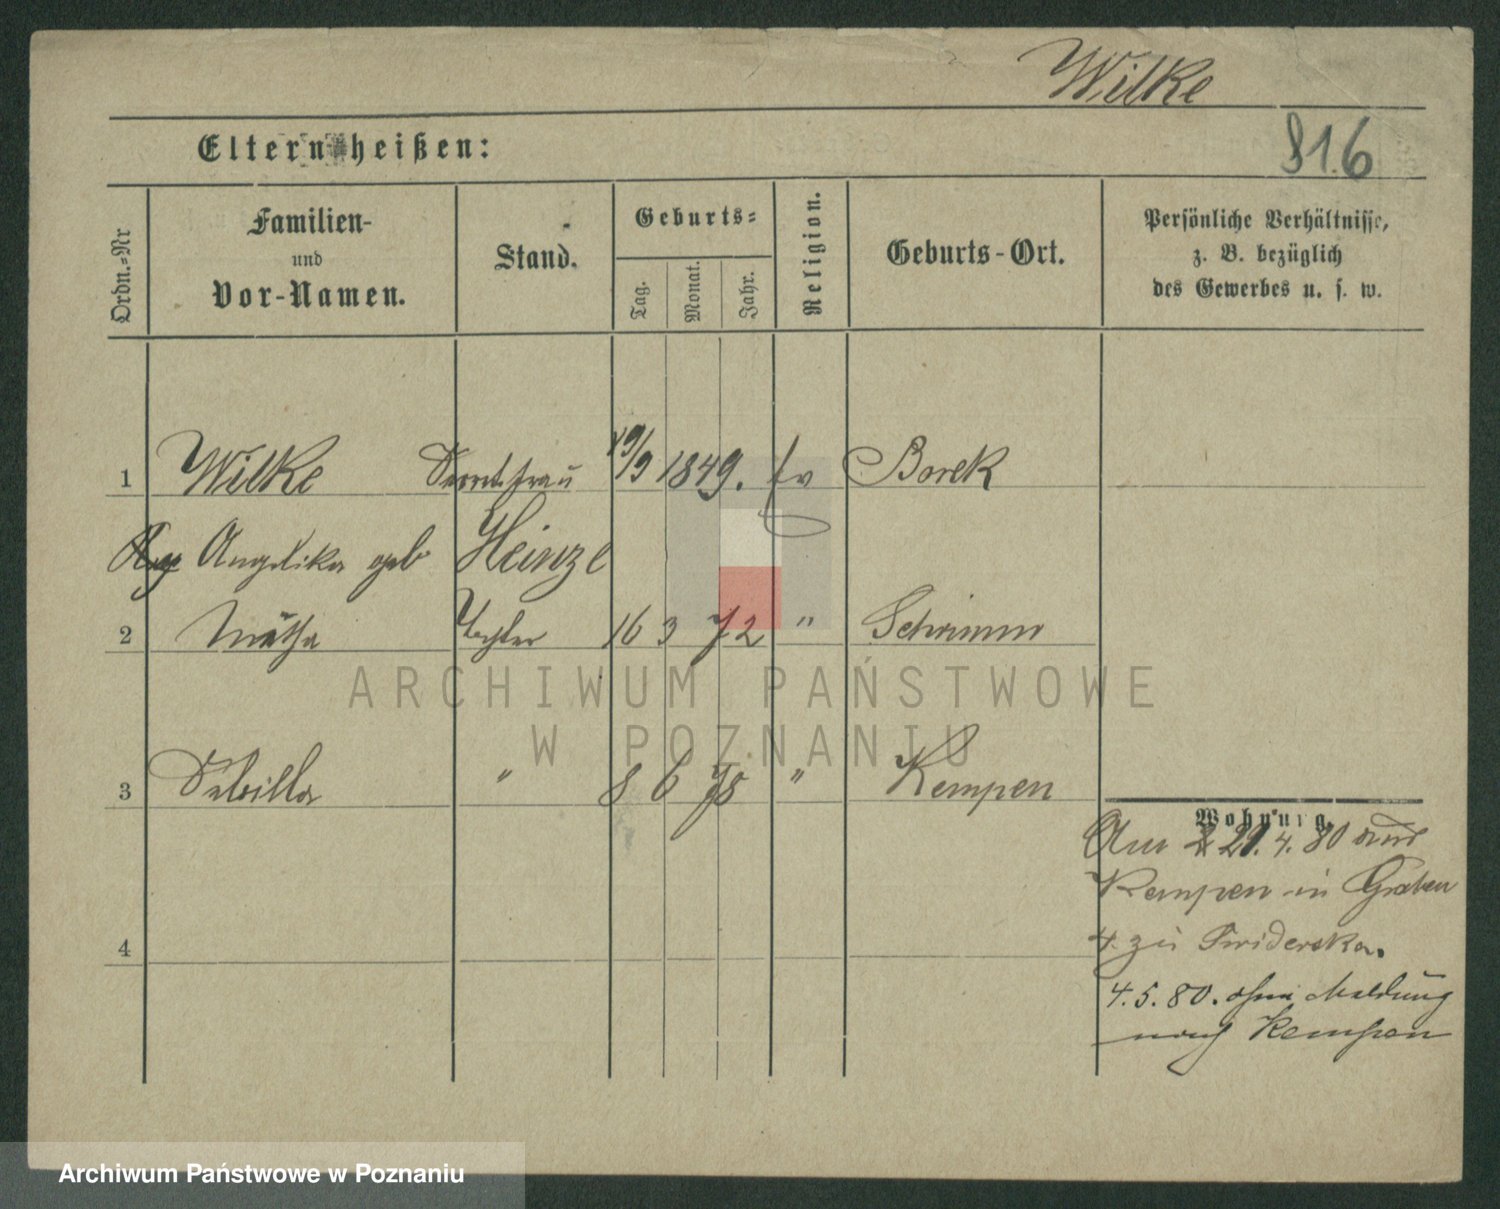 Wilke
81.6
Eltern heißen:
Ordn.-Nr
Familien-
und
Vor-Namen.
Stand.
Geburts-
Tag.
Monat.
Jahr.
Religion.
Geburts-Ort.
Persönliche Verhältnisse,
z. B. bezüglich
des Gewerbes u. s. w.
1 Wilke 19/9 1849. ev Borek
Angelika geb Heinze
2 Tochter 16 3 72 " Schrimm
3 Sibilla " 8 6 78 " Kempen
4
Wohnung.
Am 21. 4. 80 aus
Kempen in Graben
4. zu Swiderska.
4. 5. 80. ohne Meldung
nach Kempen
ARCHIWUM PAŃSTWOWE
W POZNANIU
Archiwum Państwowe w Poznaniu